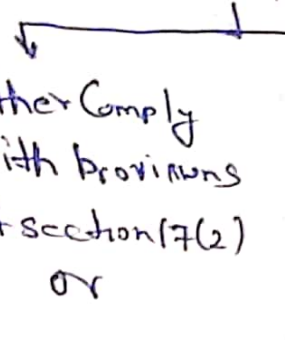 ther Comply
ith provisions
section 17(2)
or